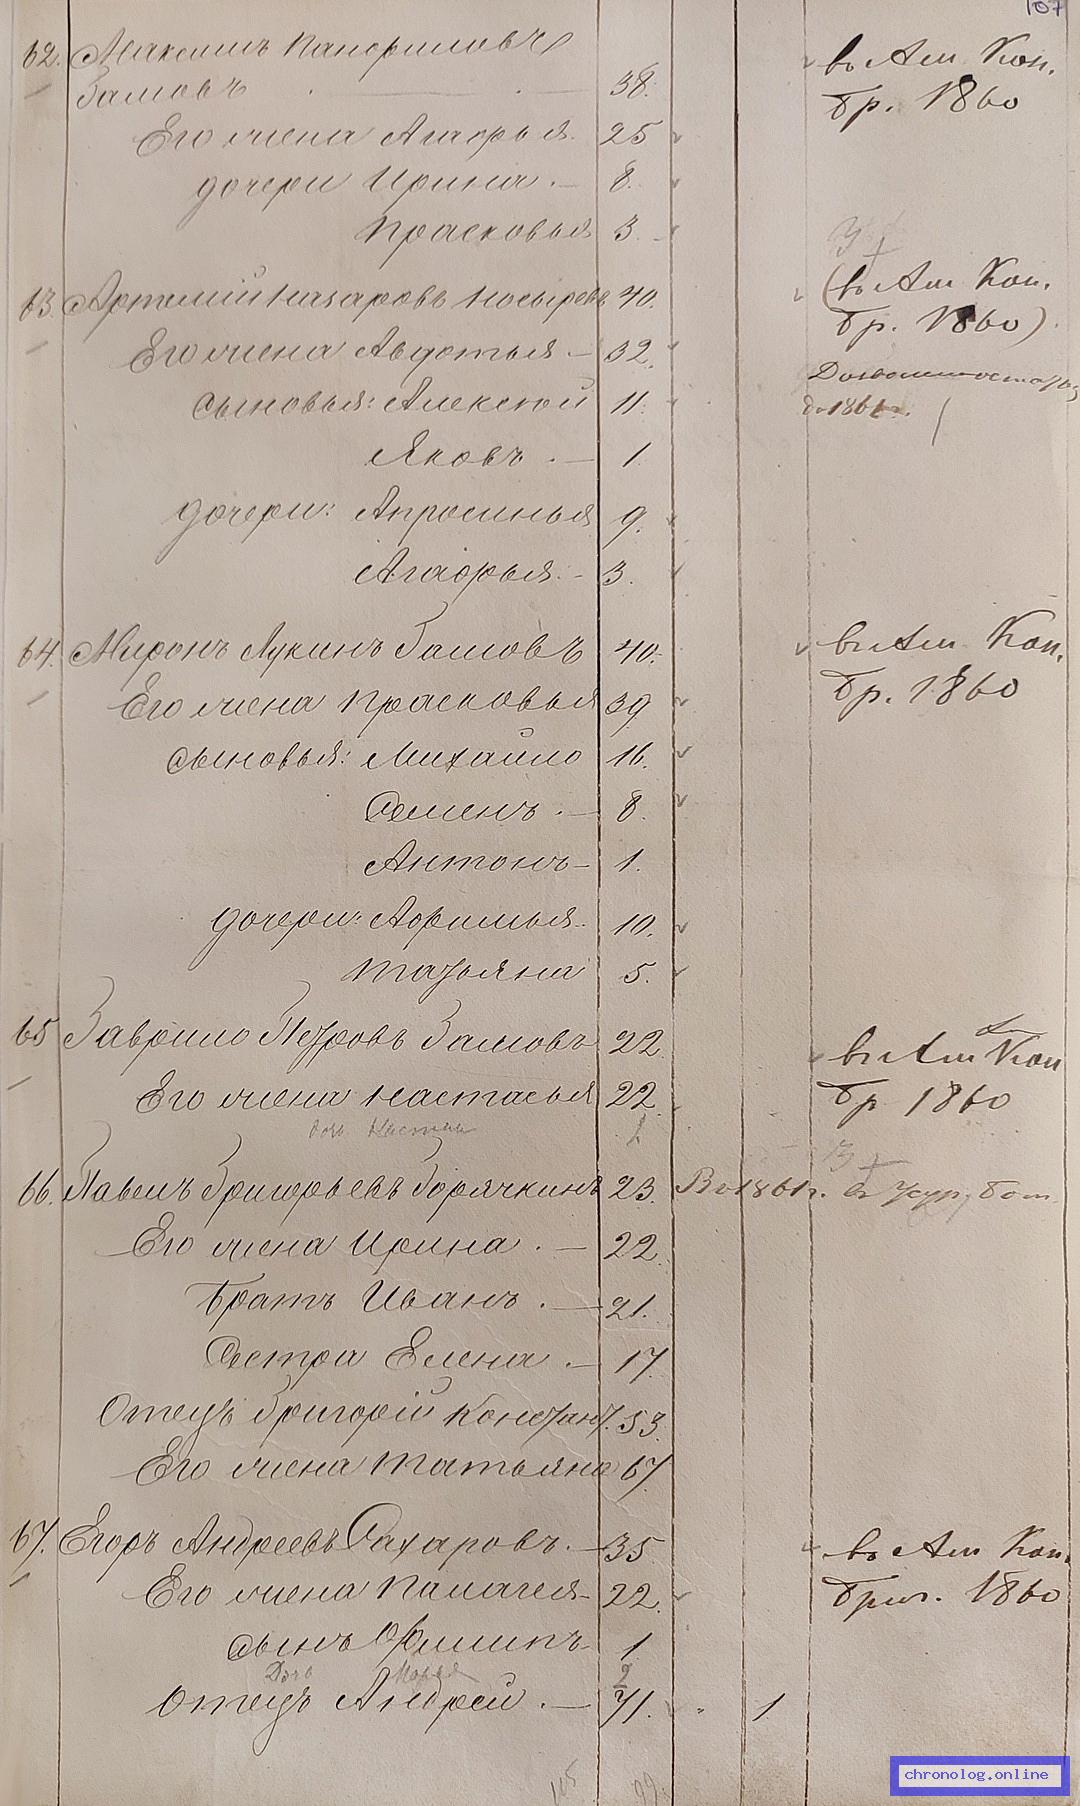 107
62. Максимъ Панфиловъ
Замовъ 38. въ Ам. Кон.
Бр. 1860
Его жена Агафья 25
дочери Ирина. 8.
Прасковья 3
63. Артемій Назаровъ Носыревъ 40. (въ Ам Кон.
Бр. 1860)
Его жена Авдотья 32.
до 1861г.
сыновья: Алексѣй 11.
Яковъ. 1
дочери: Апросинья 9.
Агафья. 3.
64. Миронъ Лукинъ Замовъ 40. въ Ам Кон.
Бр. 1860
Его жена Прасковья 39
сыновья: Михайло 16.
Семенъ. 8.
Антонъ 1.
дочери: Афимья 10.
Татьяна 5.
65 Гаврило Петровъ Замовъ 22 въ Ам Кон
Бр 1860
Его жена Настасья 22
66. Павелъ Григорьевъ Горячкинъ 23. Въ 1861г.
Его жена Ирина. 22.
Братъ Иванъ. 21.
Сестра Елена. 17
Отецъ Григорій Констант. 53.
Его жена Татьяна 67
67. Егоръ Андреевъ Сахаровъ. 35 въ Ам Кон.
Его жена Палагея 22. Бриг. 1860
сынъ Филипъ 1
Дочь Марья 2
Отецъ Андрей. 71. 1
chronolog.online